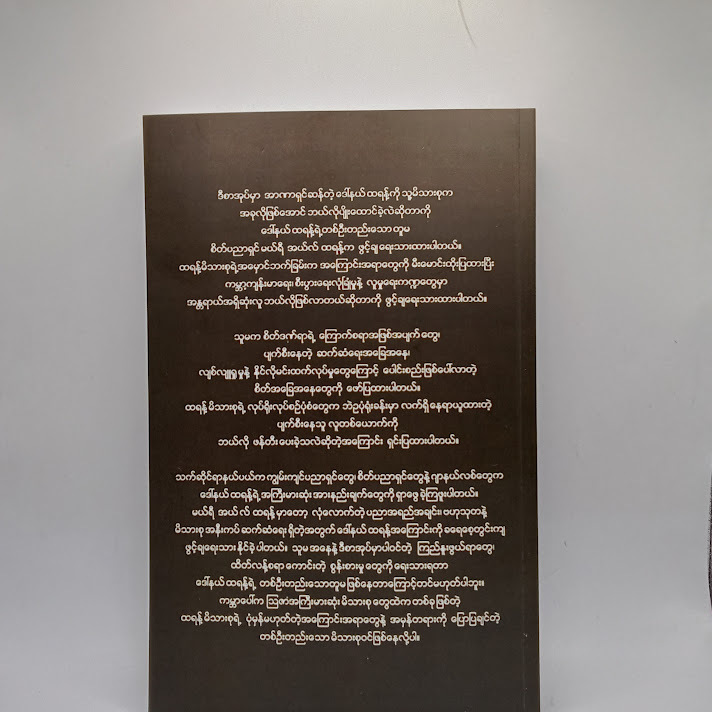 ဒီစာအုပ်မှာ အာဏာရှင်ဆန်တဲ့ ဒေါ်နယ် ထရန့်ကို သူ့မိသားစုက
အခုလိုဖြစ်အောင် ဘယ်လိုပျိုးထောင်ခဲ့လဲဆိုတာကို
ဒေါ်နယ် ထရန့်ရဲ့တစ်ဦးတည်းသော တူမ
စိတ်ပညာရှင် မယ်ရီ အယ်လ် ထရန့်က ဖွင့်ချ ရေးသားထားပါတယ်။
ထရန့်မိသားစုရဲ့အမှောင်ဘက်ခြမ်းက အကြောင်းအရာတွေကို မီးမောင်းထိုးပြထားပြီး
ကမ္ဘာ့ကျန်းမာရေး၊ စီးပွားရေးလုံခြုံမှုနဲ့ လူမှုရေးကဏ္ဍတွေမှာ
အန္တရာယ်အရှိဆုံးလူ ဘယ်လိုဖြစ်လာတယ်ဆိုတာကို ဖွင့်ချရေးသားထားပါတယ်။
သူမက စိတ်ဒဏ်ရာရဲ့ ကြောက်စရာအဖြစ်အပျက် တွေ၊
ပျက်စီးနေတဲ့ ဆက်ဆံရေးအခြေအနေ၊
လျစ်လျူရှု မှုနဲ့ နိုင်လိုမင်းထက်လုပ်မှုတွေကြောင့် ပေါင်းစည်းဖြစ်ပေါ်လာတဲ့
စိတ်အခြေအနေတွေကို ဖော်ပြထားပါတယ်။
ထရန့် မိသားစုရဲ့ လုပ်ရိုးလုပ်စဉ်ပုံစံတွေက ဘဲဥပုံရုံးခန်းမှာ လက်ရှိ နေရာယူထားတဲ့
ပျက်စီးနေသူ လူတစ်ယောက်ကို
ဘယ်လို ဖန်တီး ပေးခဲ့သလဲဆိုတဲ့အကြောင်း ရှင်းပြထားပါတယ်။
သက်ဆိုင်ရာနယ်ပယ်က ကျွမ်းကျင်ပညာရှင်တွေ၊ စိတ်ပညာရှင်တွေနဲ့ ဂျာနယ်လစ်တွေက
ဒေါ်နယ် ထရန့်ရဲ့ အကြီးမားဆုံး အားနည်းချက်တွေကို ရှာဖွေ ခဲ့ကြဖူးပါတယ်။
မယ်ရီ အယ်လ် ထရန့် မှာတော့ လုံလောက်တဲ့ ပညာအရည်အချင်း၊ ဗဟုသုတနဲ့
မိသားစု အနီးကပ် ဆက်ဆံရေး ရှိတဲ့အတွက် ဒေါ်နယ် ထရန့်အကြောင်းကို ခရေစေ့တွင်းကျ
ဖွင့်ချရေးသား နိုင်ခဲ့ ပါတယ်။ သူမ အနေနဲ့ ဒီစာအုပ်မှာပါဝင်တဲ့ ကြည်နူးဖွယ်ရာတွေ၊
ထိတ်လန့်စရာ ကောင်းတဲ့ စွန့်စားမှု တွေကို ရေးသားရတာ
ဒေါ်နယ် ထရန့်ရဲ့ တစ်ဦးတည်းသောတူမ ဖြစ်နေတာကြောင့်တင်မဟုတ်ပါဘူး။
ကမ္ဘာပေါ်က ဩဇာအကြီးမားဆုံး မိသားစု တွေထဲက တစ်ခု ဖြစ်တဲ့
ထရန့် မိသားစုရဲ့ ပုံမှန်မဟုတ်တဲ့အကြောင်းအရာတွေနဲ့ အမှန်တရားကို ပြောပြချင်တဲ့
တစ်ဦးတည်းသော မိသားစုဝင်ဖြစ်နေလို့ပါ။